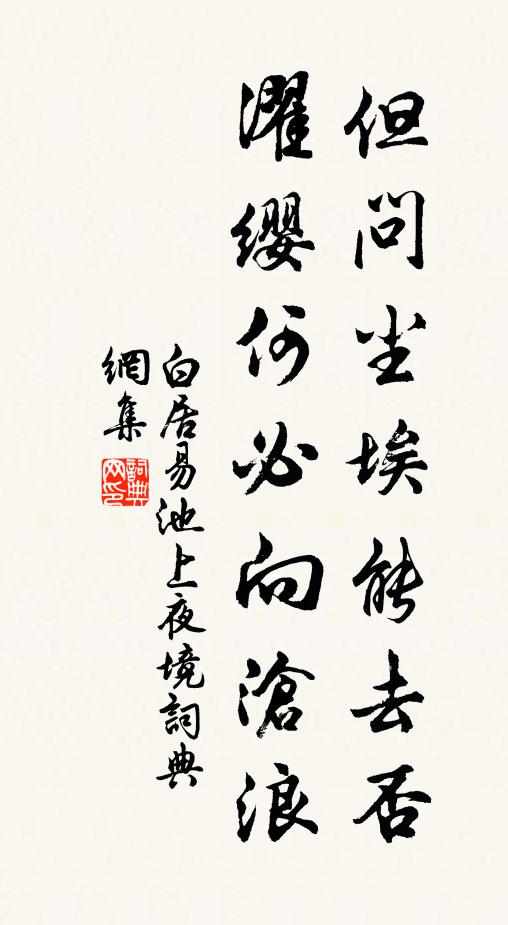 但问尘埃能去否
濯缨何必向滄浪
白居易池上夜境詞典
網集
詞典网印